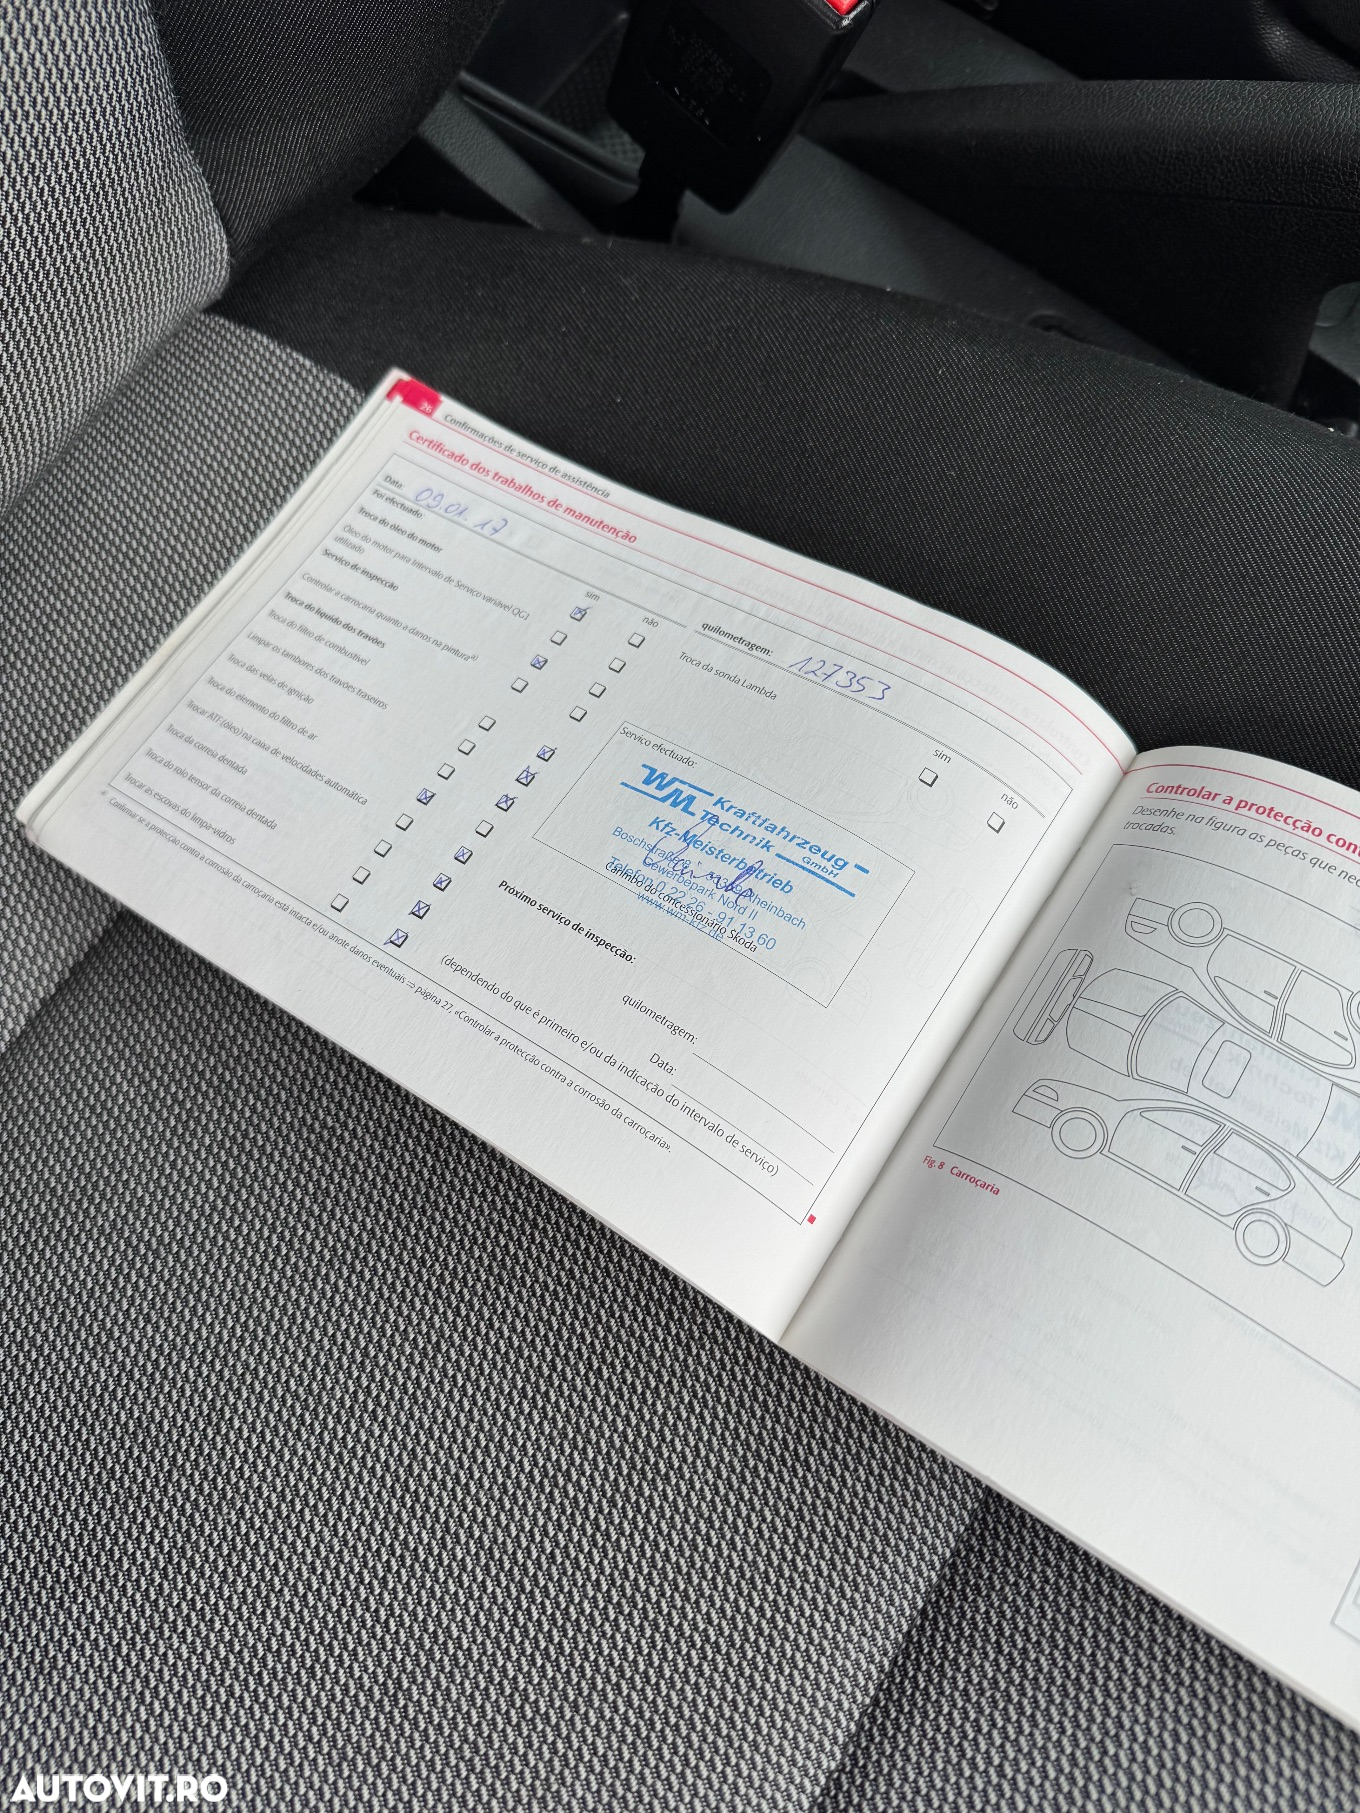 26
Confirmações de serviço de assistência
Certificado dos trabalhos de manutenção
Data: 09.01.17
quilometragem: 127353
Foi efectuado:
sim
não
Troca do óleo do motor
Óleo do motor para Intervalo de Serviço variável QG1
utilizado
Serviço de inspecção
Controlar a carroçaria quanto a danos na pintura a)
Troca do líquido dos travões
Troca do filtro de combustível
Limpar os tambores dos travões traseiros
Troca das velas de ignição
Troca do elemento do filtro de ar
Trocar ATF (óleo) na caixa de velocidades automática
Troca da correia dentada
Troca do rolo tensor da correia dentada
Trocar as escovas do limpa-vidros
Troca da sonda Lambda
sim
não
Serviço efectuado:
WM Kraftfahrzeug
Technik GmbH
Kfz-Meisterbetrieb
Rheinbach
Gewerbepark Nord II
Telefon 0 22 26 - 91 13 60
www.wm-kfz.de
Carimbo do concessionário Skoda
Próximo serviço de inspecção:
quilometragem:
Data:
(dependendo do que é primeiro e/ou da indicação do intervalo de serviço)
a) Confirmar se a protecção contra a corrosão da carroçaria está intacta e/ou anote danos eventuais ⇒ página 27, «Controlar a protecção contra a corrosão da carroçaria».
Controlar a protecção cont
Desenhe na figura as peças que nec
trocadas.
Fig. 8 Carroçaria
AUTOVIT.RO